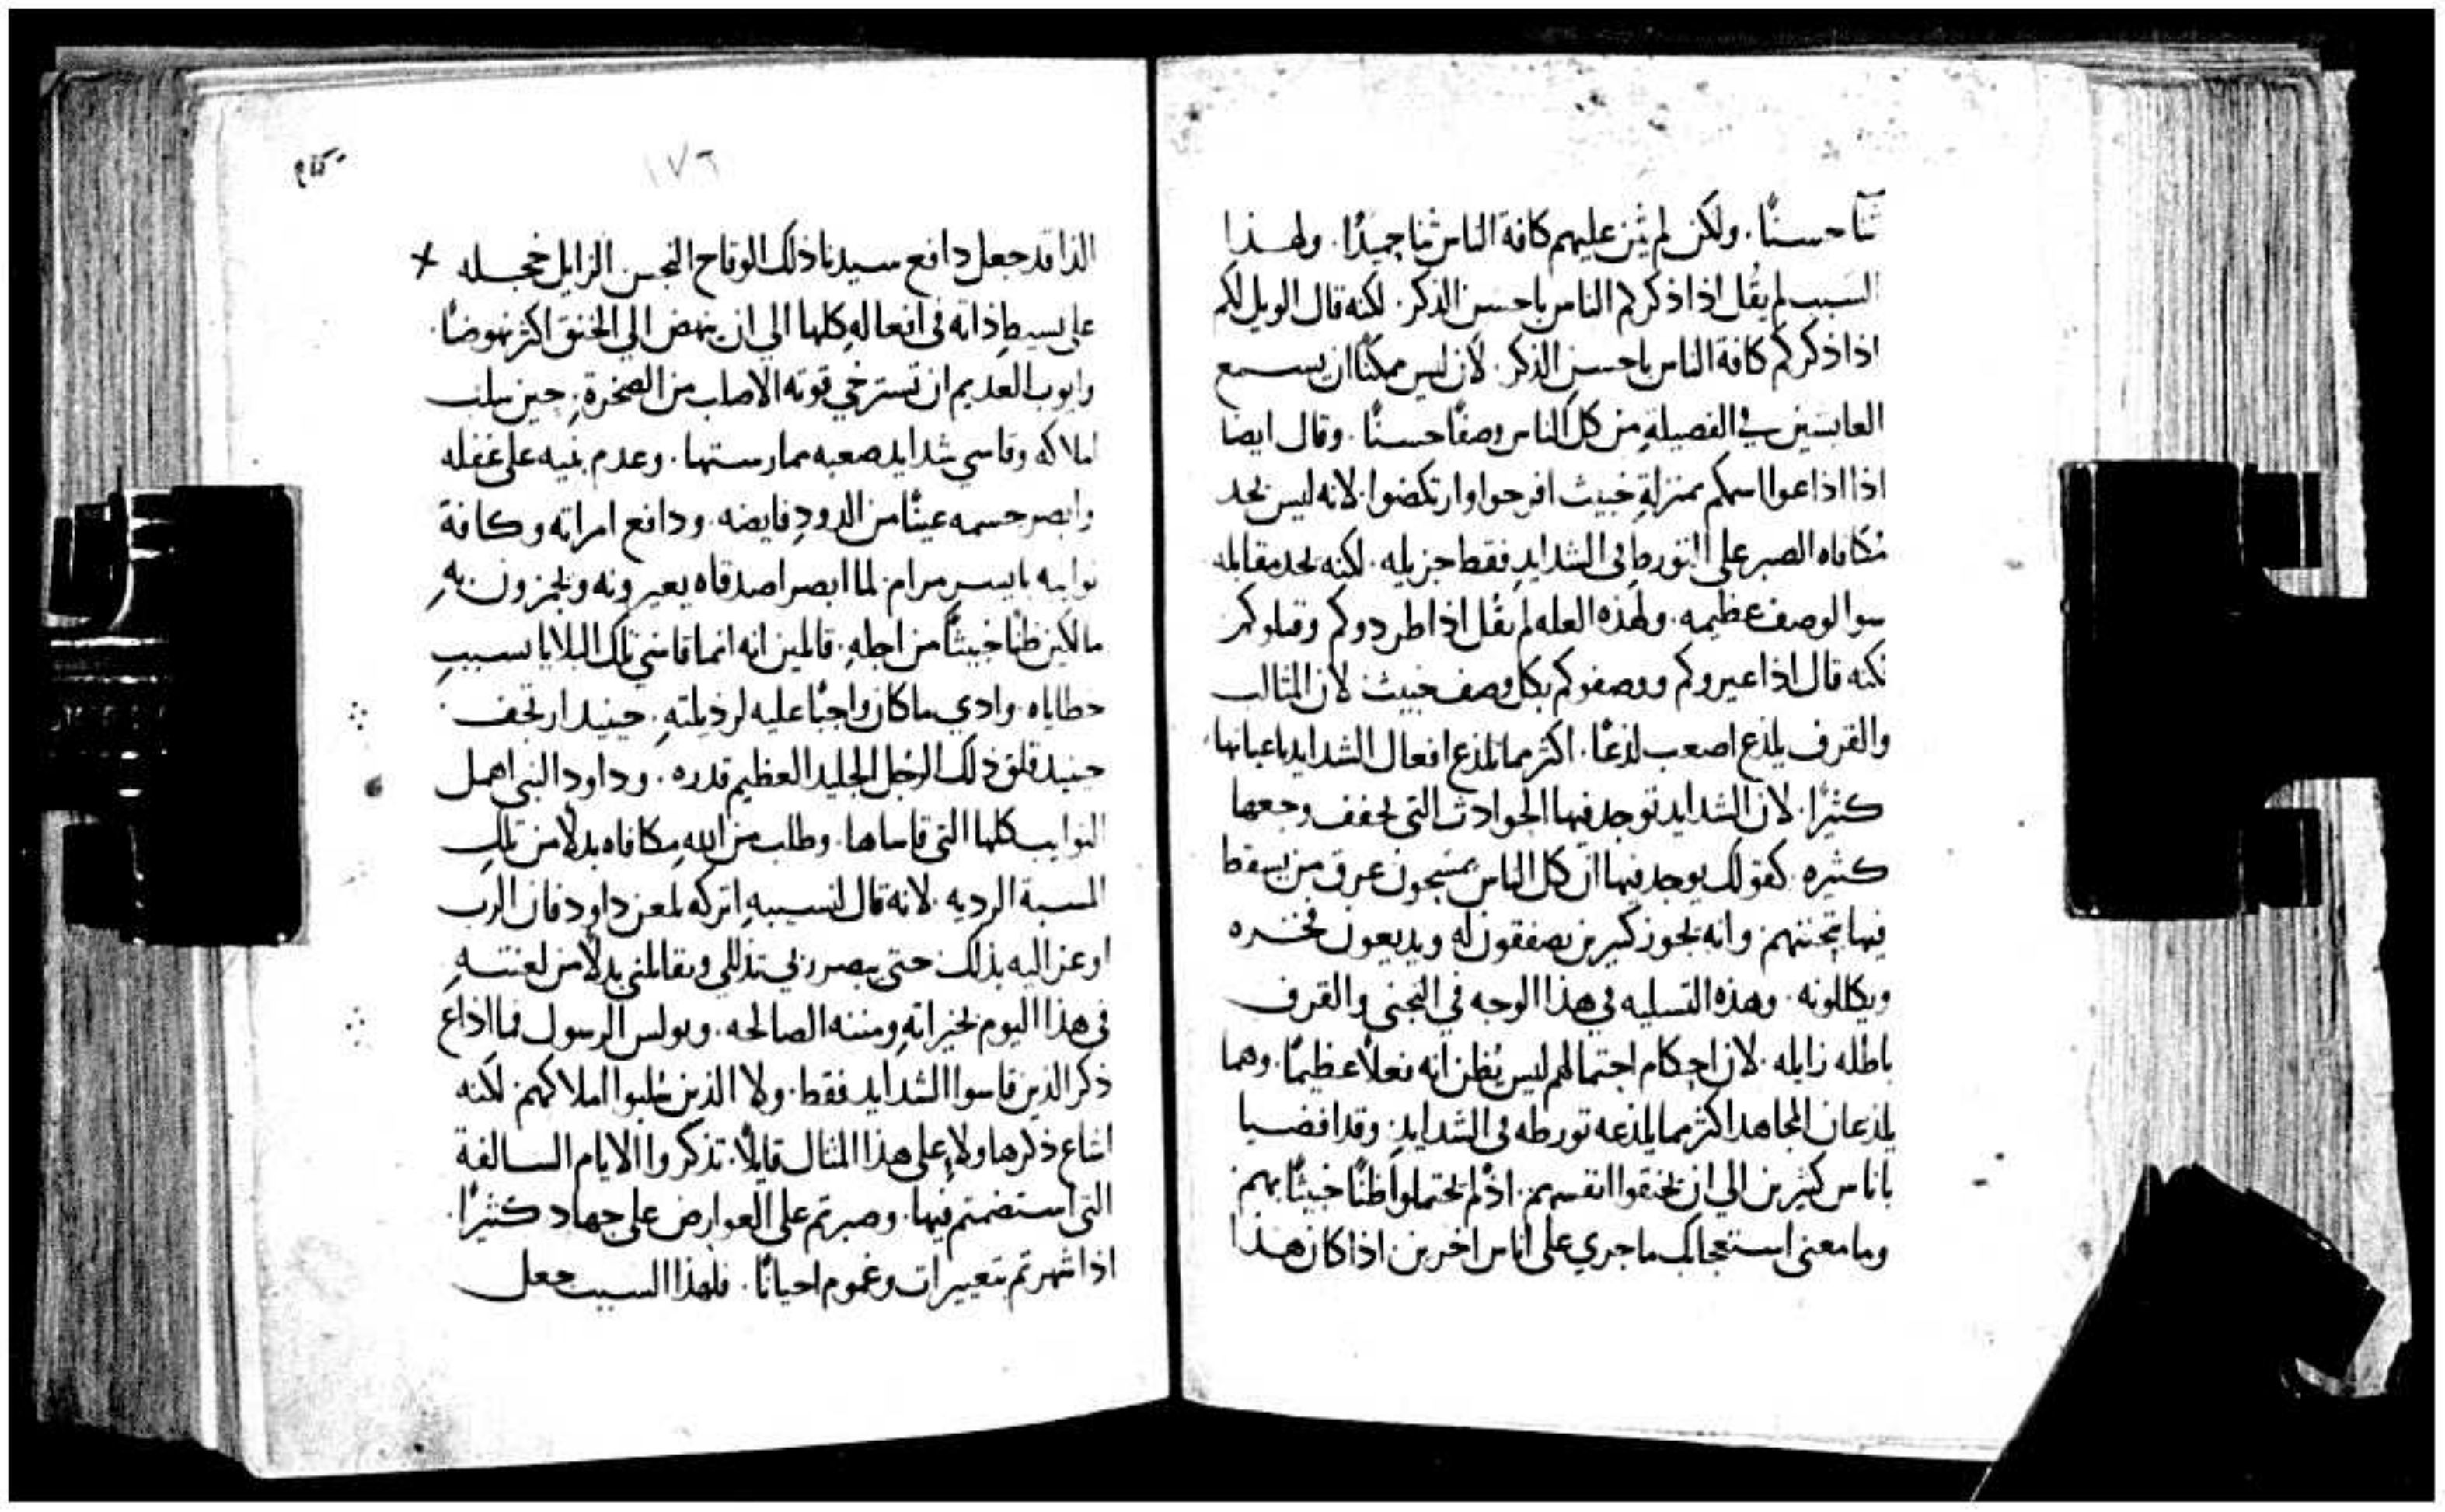 ثنا حسنًا. ولكن لم يثن عليهم كافة الناس ثنا حميدًا. ولهذا
السبب لم يقل اذا ذكركم الناس باحسن الذكر. لكنه قال الويل لكم
اذا ذكركم كافة الناس باحسن الذكر. لان ليس ممكنًا ان يسمع
العايشين في الفضيلة من كل الناس وصفًا حسنًا. وقال ايضا
اذا اذاعوا اسمكم بمنزلة خبيث افرحوا وارتكضوا. لانه ليس يحد
مكافاه الصبر على التورط في الشدايد فقط جزيله. لكنه يحد مقابله
سوا لوصف عظيمه. ولهذه العله لم يقل اذا طردوكم وقتلوكم
لكنه قال اذا عيروكم ووصفوكم بكل وصف خبيث. لان المثالب
والقرف يلذع اصعب لذعًا. اكثر مما تلذع افعال الشدايد باعيانها
كثيرًا. لان الشدايد توجد فيها الحوادث التي تخفف وجعها
كثيره. كقولك يوجد فيها ان كل الناس يمسحون عرق من يسقط
فيها بتحننهم. وانه يجوز كثيرين يصفقون له ويذيعون فخره
ويكللونه. وهذه التسليه في هذا الوجه في التجني والقرف
باطله زايله. لان احكام احتمالهم ليس يظن انه فعلاً عظيمًا. وهما
يلذعان المجاهد اكثر مما يلذعه تورطه في الشدايد. وقد افضيا
باناس كثيرين الى ان يخنقوا انفسهم. اذ لم يحتملوا ظنًا خبيثًا بهم
وما معنى استعجابك ما جري على اناس اخرين اذا كان هذا
١٧٦
الذا قد جعل دافع سيدنا ذلك الوقاح النجس الزايل خجله
على بسيط ذاته في افعاله كلها الي ان ينهض الي الخنق اكثر نهوضًا.
وايوب العديم ان تسترخي قوته الاصلب من الصخرة. حين سلب
املاكه وقاسي شدايد صعبه ممارستها. وعدم بنيه على غفله
وابصر جسمه عينًا من الدود فايضه. ودافع امراته وكافة
نوايبه بايسر مرام. لما ابصر اصدقاه يعيرونه ويهزون به
مالكين ظنًا خبيثًا من اجله. قالين انه انما قاسي تلك البلايا بسبب
خطاياه. وادي ما كان واجبًا عليه لرذيلته. حينيد ارتجف
حينيد قلق ذلك الرجل الجليد العظيم قدره. وداود النبي اهمل
النوايب كلها التي قاساها. وطلب من الله مكافاه بدلاً من تلك
المسبة الرديه. لانه قال لنسيبه اتركه يلعن داود فان الرب
اوعز اليه بذلك حتى يبصر ربي تذللي ويقابلني بدلاً من لعنته
في هذا اليوم بخيراته ومننه الصالحه. وبولس الرسول فما اذاع
ذكر الذين قاسوا الشدايد فقط. ولا الذين سلبوا املاكهم. لكنه
اشاع ذكرها ولا على هذا المثال قايلاً. تذكروا الايام السالفة
التي استضمتم فيها. وصبرتم على العوارض على جهاد كثيرًا.
اذا شهرتم بتعييرات وغموم احيانًا. فلهذا السبب جعل